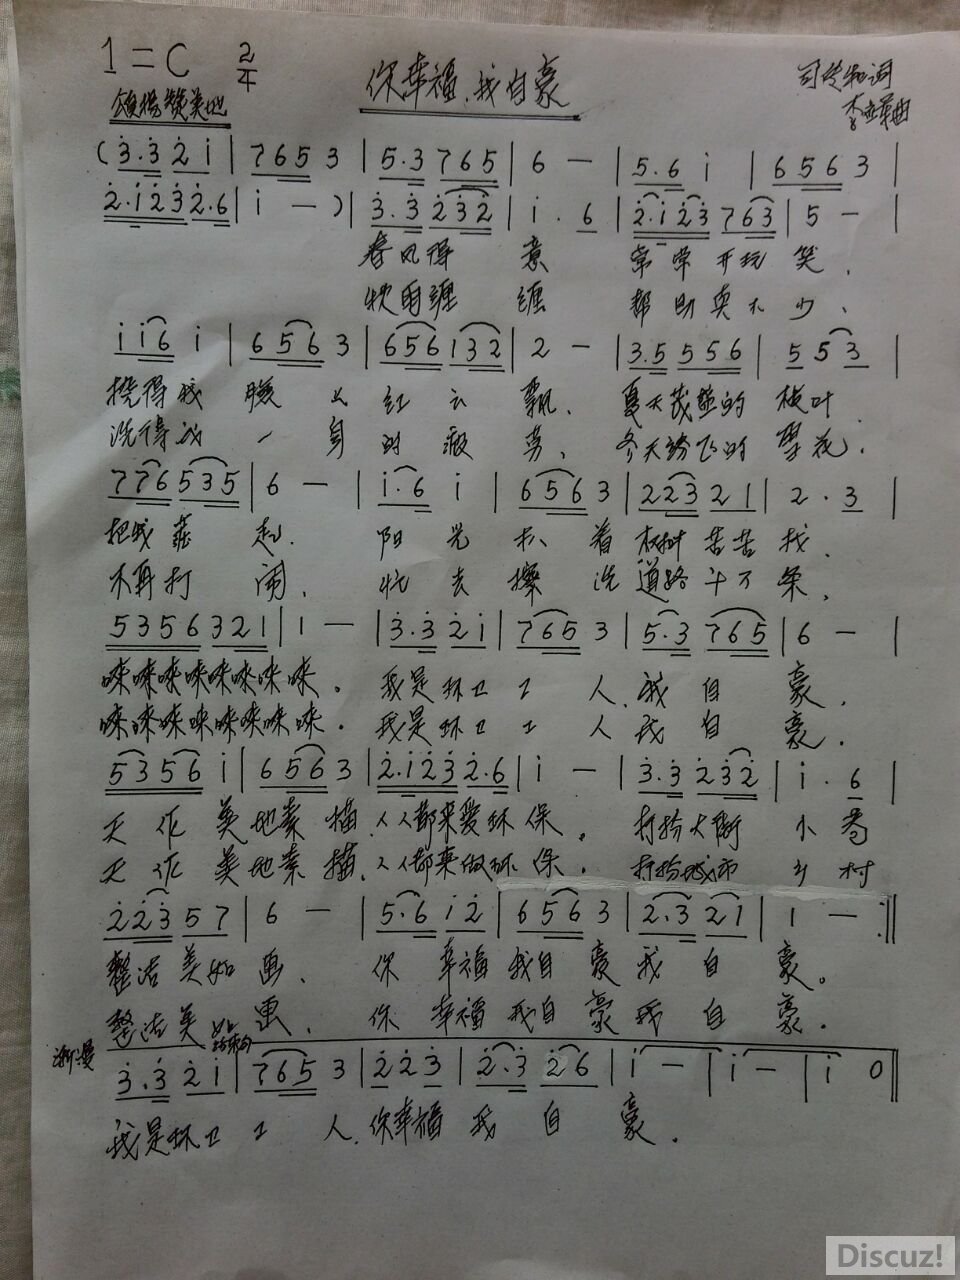 1=C 2/4
你幸福，我自豪
颂扬赞美地
词
曲
(3.3 2 1 | 7 6 5 3 | 5.3 7 6 5 | 6 — | 5.6 i | 6 5 6 3 |
2.1 2 3 2.6 | i — ) | 3.3 2 3 2 | i . 6 | 2.1 2 3 7 6 3 | 5 — |
春风得 意 常常开玩 笑，
秋雨缠 缠 帮助真不少，
i i 6 i | 6 5 6 3 | 6 5 6 1 3 2 | 2 — | 3.5 5 5 6 | 5 5 3 |
挠得我 脸 上 红云 飘，夏天茂盛的 枝叶
洗得我 一 身 的疲 劳，冬天纷飞的 雪花，
7 7 6 5 3 5 | 6 — | i.6 i | 6 5 6 3 | 2 2 3 2 1 | 2 . 3 |
把我 起， 阳 光 着 树叶 苦苦 找，
不再打 闹， 忙 去 擦 洗 道路 千万 条，
5 3 5 6 3 2 1 | 1 — | 3.3 2 i | 7 6 5 3 | 5.3 7 6 5 | 6 — |
唻唻唻唻唻唻唻唻。 我是环卫 工 人，我 自 豪，
唻唻唻唻唻唻唻唻。 我是环卫 工 人 我 自 豪，
5 3 5 6 i | 6 5 6 3 | 2.1 2 3 2.6 | i — | 3.3 2 3 2 | i . 6 |
天 作 美 地素 描，人人都来爱环 保。 打扮大街 小 巷
天 作 美 地素 描，人人都来做环 保。 打扮城市 乡 村
2 2 3 5 7 | 6 — | 5.6 i 2 | 6 5 6 3 | 2.3 2 1 | 1 — :||
整洁美如 画， 你 幸福 我自 豪 我 自 豪。
整洁美如 画， 你 幸福 我自 豪 我 自 豪。
渐慢
结束句
3.3 2 1 | 7 6 5 3 | 2 2 3 | 2.3 2 6 | i — | i — | i 0 ||
我是环卫 工 人，你幸福 我 自 豪。
Discuz!